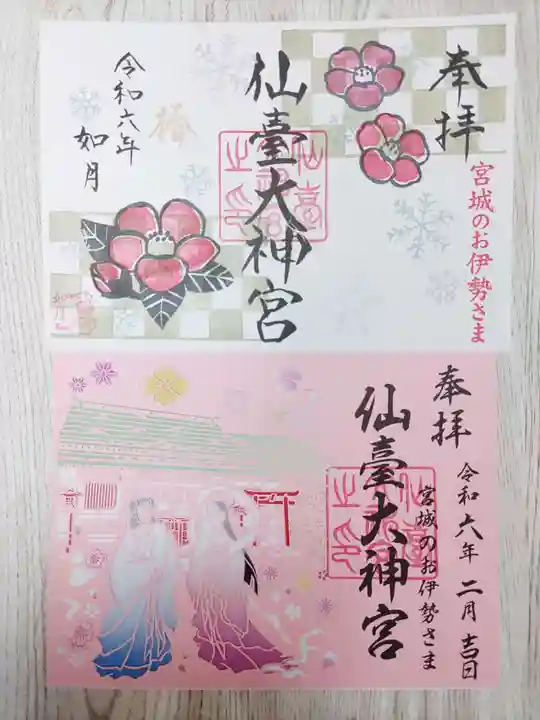 奉拝
宮城のお伊勢さま
仙臺大神宮
椿
令和六年
如月
奉拝
令和六年二月吉日
宮城のお伊勢さま
仙臺大神宮